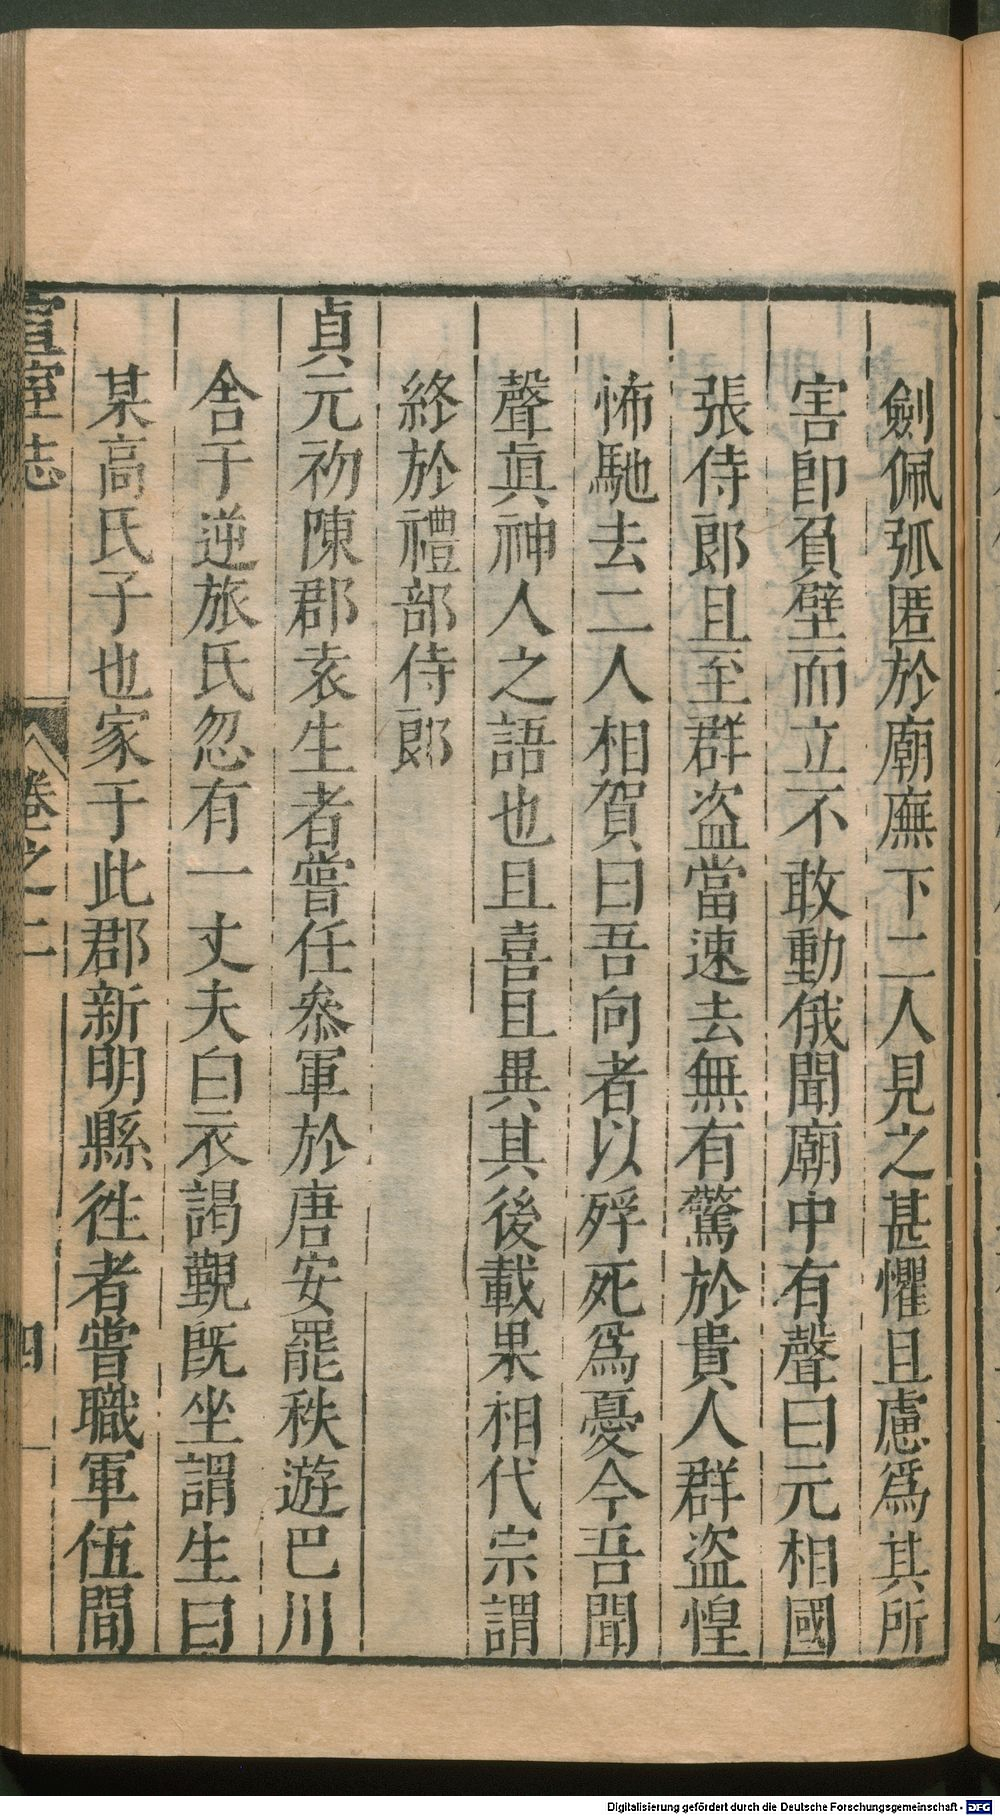 劍佩弧匿於廟廡下二人見之甚懼且慮爲其所
害卽負壁而立不敢動俄聞廟中有聲曰元相國
張侍郎且至群盜當速去無有驚於貴人群盜惶
怖馳去二人相賀曰吾向者以殍死爲憂今吾聞
聲眞神人之語也且喜且異其後載果相代宗謂
終於禮部侍郎
貞元初陳郡袁生者嘗任叅軍於唐安罷秩遊巴川
舍于逆旅氏忽有一丈夫白衣謁覲旣坐謂生曰
某高氏子也家于此郡新明縣徃者嘗職軍伍間
宣室志 卷之二 四
Digitalisierung gefördert durch die Deutsche Forschungsgemeinschaft - DFG